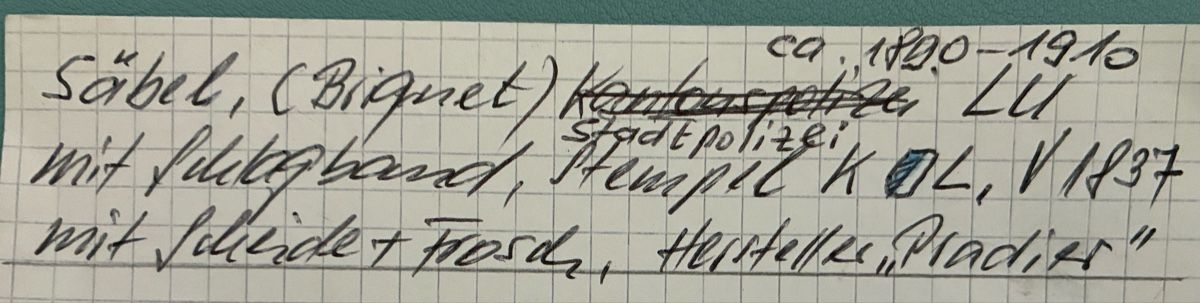 ca. 1890-1910
Säbel, (Briquet) Kantonspolizei LU
Stadtpolizei
mit Schlagband, Stempel K L, V 1837
mit Scheide + Frosch, Hersteller „Pradier"